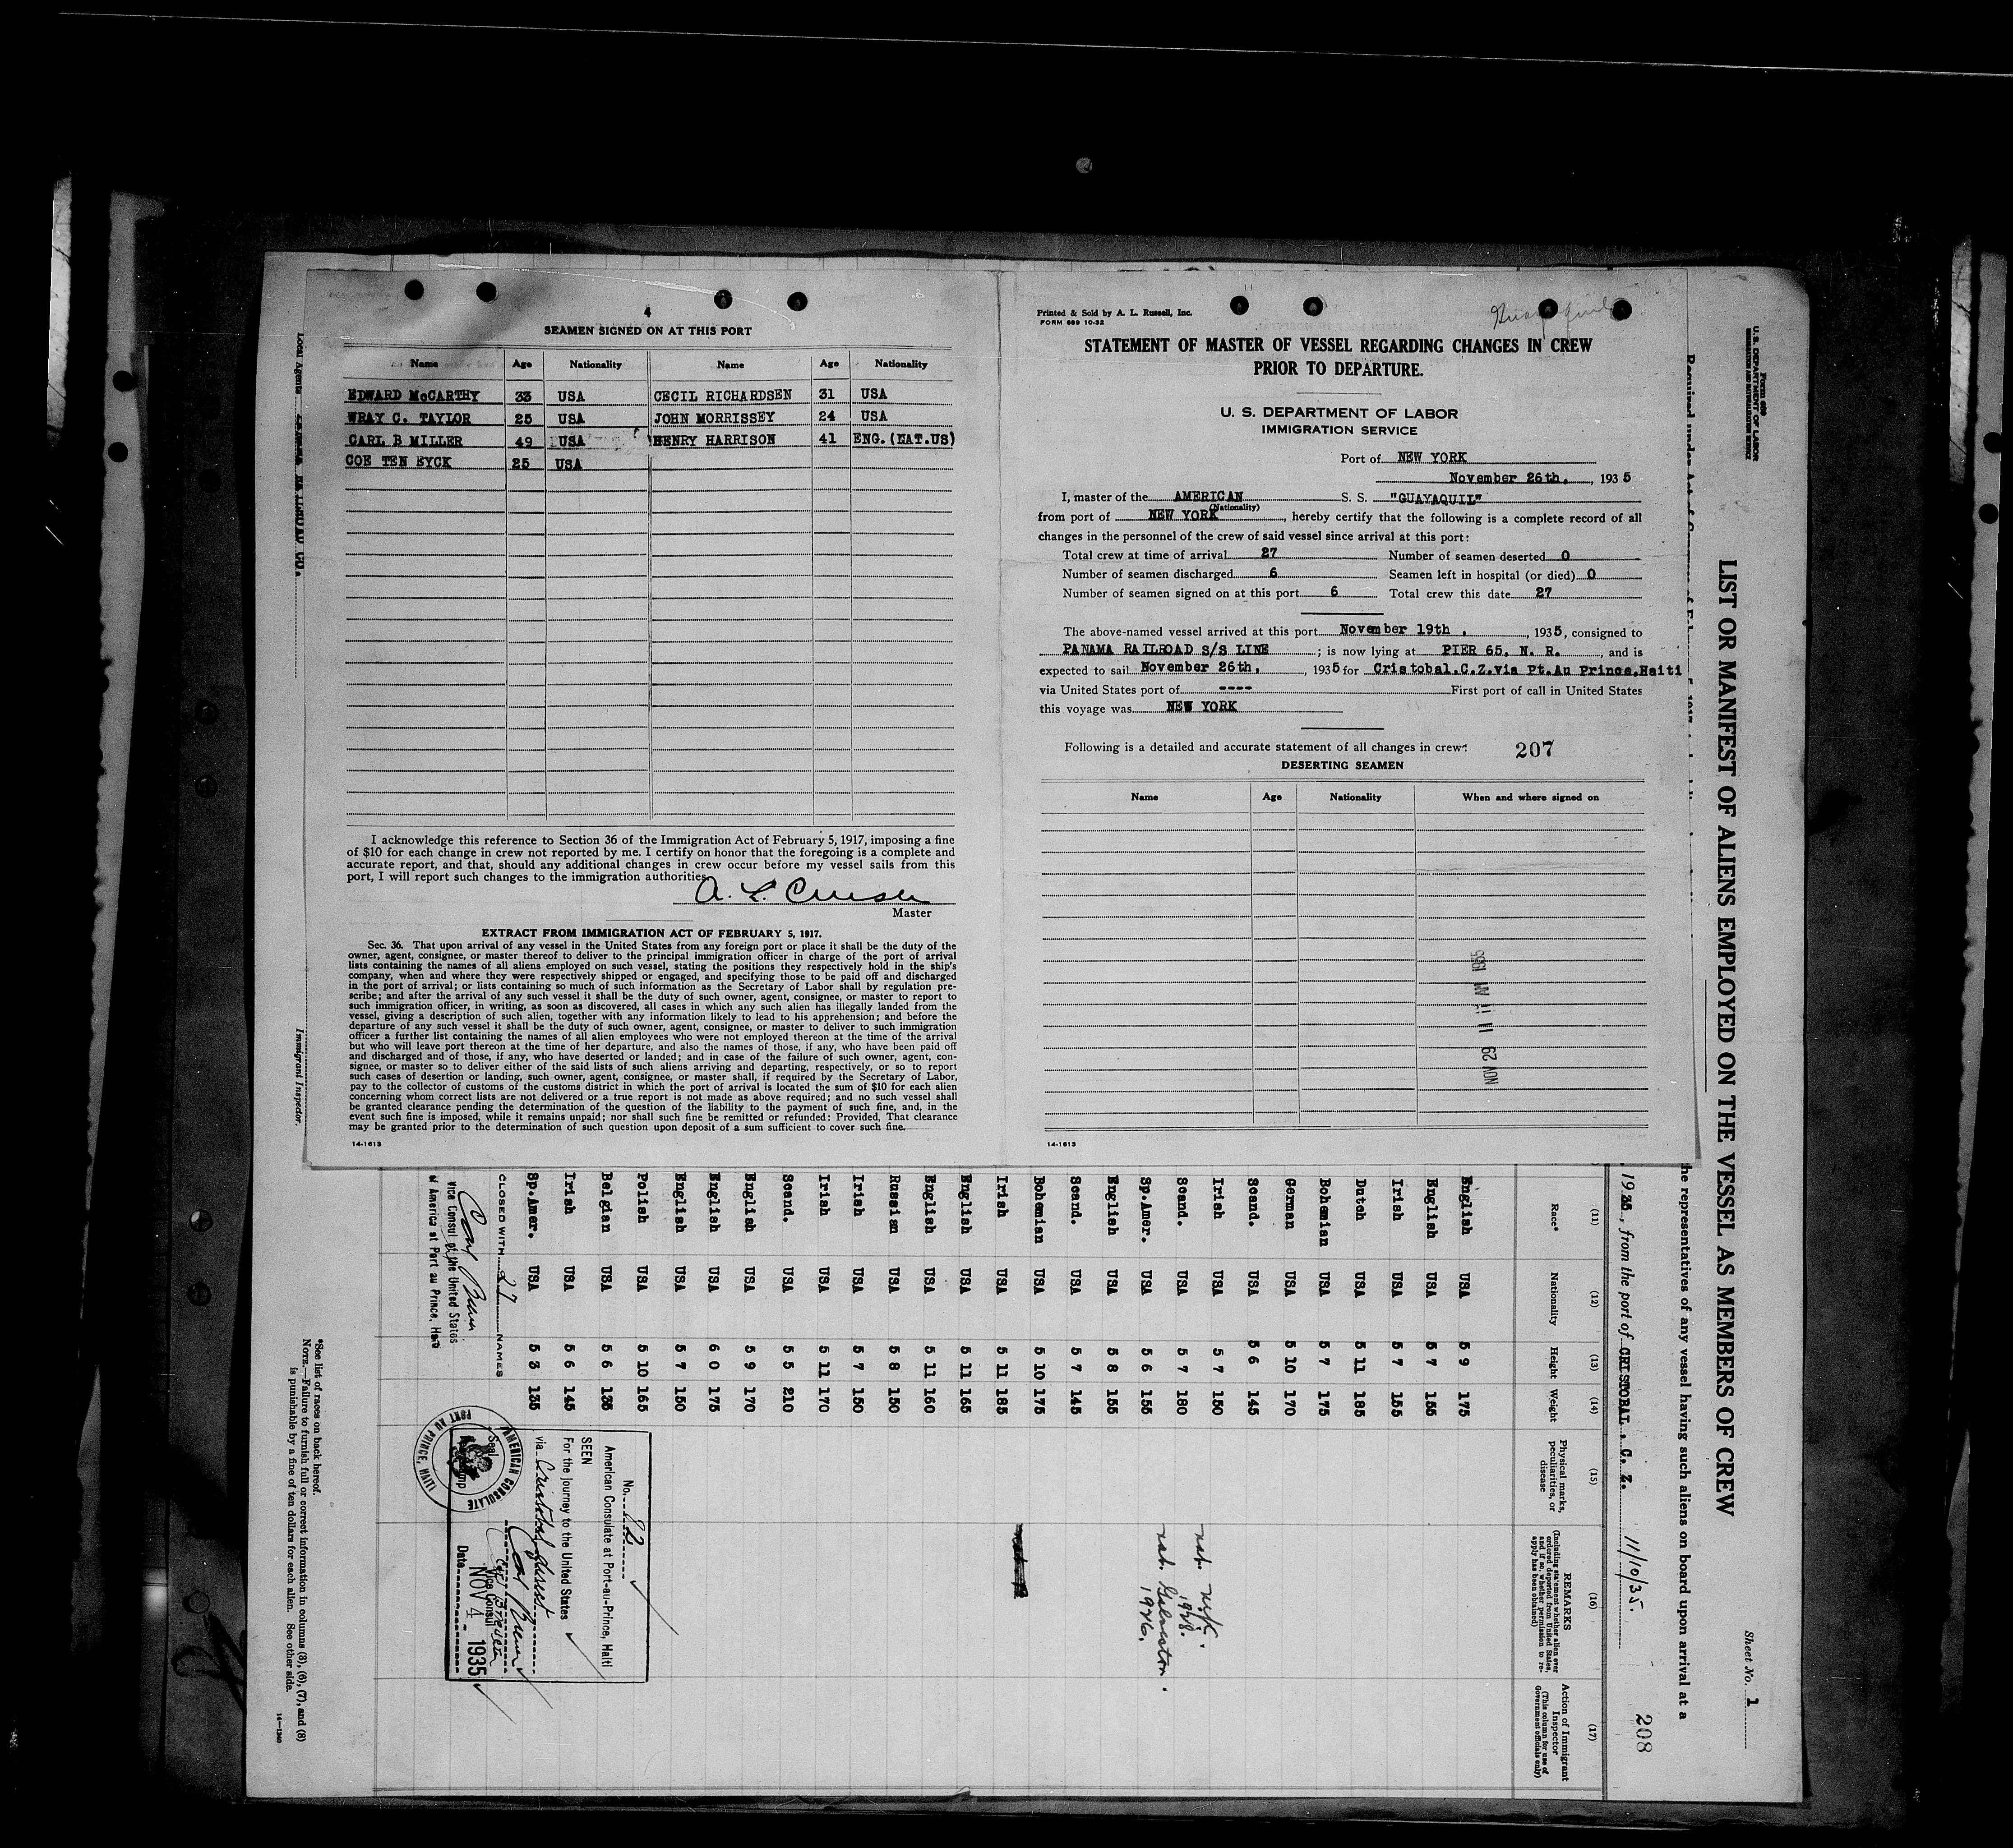 4
SEAMEN SIGNED ON AT THIS PORT
Name Age Nationality Name Age Nationality
EDWARD McCARTHY 33 USA CECIL RICHARDSEN 31 USA
WRAY C. TAYLOR 25 USA JOHN MORRISSEY 24 USA
CARL B MILLER 49 USA HENRY HARRISON 41 ENG.(NAT.US)
COE TEN EYCK 25 USA
I acknowledge this reference to Section 36 of the Immigration Act of February 5, 1917, imposing a fine
of $10 for each change in crew not reported by me. I certify on honor that the foregoing is a complete and
accurate report, and that, should any additional changes in crew occur before my vessel sails from this
port, I will report such changes to the immigration authorities.
A. L.
Master
EXTRACT FROM IMMIGRATION ACT OF FEBRUARY 5, 1917.
Sec. 36. That upon arrival of any vessel in the United States from any foreign port or place it shall be the duty of the
owner, agent, consignee, or master thereof to deliver to the principal immigration officer in charge of the port of arrival
lists containing the names of all aliens employed on such vessel, stating the positions they respectively hold in the ship's
company, when and where they were respectively shipped or engaged, and specifying those to be paid off and discharged
in the port of arrival; or lists containing so much of such information as the Secretary of Labor shall by regulation pre-
scribe; and after the arrival of any such vessel it shall be the duty of such owner, agent, consignee, or master to report to
such immigration officer, in writing, as soon as discovered, all cases in which any such alien has illegally landed from the
vessel, giving a description of such alien, together with any information likely to lead to his apprehension; and before the
departure of any such vessel it shall be the duty of such owner, agent, consignee, or master to deliver to such immigration
officer a further list containing the names of all alien employees who were not employed thereon at the time of the arrival
but who will leave port thereon at the time of her departure, and also the names of those, if any, who have been paid off
and discharged and of those, if any, who have deserted or landed; and in case of the failure of such owner, agent, con-
signee, or master so to deliver either of the said lists of such aliens arriving and departing, respectively, or so to report
such cases of desertion or landing, such owner, agent, consignee, or master shall, if required by the Secretary of Labor,
pay to the collector of customs of the customs district in which the port of arrival is located the sum of $10 for each alien
concerning whom correct lists are not delivered or a true report is not made as above required; and no such vessel shall
be granted clearance pending the determination of the question of the liability to the payment of such fine, and, in the
event such fine is imposed, while it remains unpaid; nor shall such fine be remitted or refunded: Provided, That clearance
may be granted prior to the determination of such question upon deposit of a sum sufficient to cover such fine.
14-1613
Printed & Sold by A. L. Russell, Inc.
FORM 689 10-32
Guayaquil
STATEMENT OF MASTER OF VESSEL REGARDING CHANGES IN CREW
PRIOR TO DEPARTURE.
U. S. DEPARTMENT OF LABOR
IMMIGRATION SERVICE
Port of NEW YORK
November 26th, , 1935
I, master of the AMERICAN S. S. "GUAYAQUIL"
(Nationality)
from port of NEW YORK , hereby certify that the following is a complete record of all
changes in the personnel of the crew of said vessel since arrival at this port:
Total crew at time of arrival 27 Number of seamen deserted 0
Number of seamen discharged 6 Seamen left in hospital (or died) 0
Number of seamen signed on at this port 6 Total crew this date 27
The above-named vessel arrived at this port November 19th , , 1935, consigned to
PANAMA RAILROAD S/S LINE ; is now lying at PIER 65, N. R. , and is
expected to sail November 26th, , 1935 for Cristobal,C.Z.via Pt.Au Prince,Haiti
via United States port of ---- First port of call in United States
this voyage was NEW YORK
Following is a detailed and accurate statement of all changes in crew:
207
DESERTING SEAMEN
Name Age Nationality When and where signed on
NOV 29 11 11 AM 1935
14-1613
Form 689
U. S. DEPARTMENT OF LABOR
IMMIGRATION AND NATURALIZATION SERVICE
Sheet No. 1
LIST OR MANIFEST OF ALIENS EMPLOYED ON THE VESSEL AS MEMBERS OF CREW
the representatives of any vessel having such aliens on board upon arrival at a
1935, from the port of CRISTOBAL, C. Z. 11/10/35. 208
(11) (12) (13) (14) (15) (16) (17)
Race* Nationality Height Weight Physical marks, peculiarities, or disease REMARKS (Including statement whether alien ever ordered deported from United States, and if so, whether permission to re-apply has been obtained) Action of Immigrant Inspector (This column for use of Government officials only)
English USA 5 9 175
English USA 5 7 155
Irish USA 5 7 155
Dutch USA 5 11 185
Bohemian USA 5 7 175
German USA 5 10 170
Scand. USA 5 6 145
Irish USA 5 7 150
Scand. USA 5 7 180 nat. 1928.
Sp.Amer. USA 5 6 155 nat. Galveston. 1926.
English USA 5 8 155
Scand. USA 5 7 145
Bohemian USA 5 10 175
Irish USA 5 11 185
English USA 5 11 165
English USA 5 11 160
Russian USA 5 8 150
Irish USA 5 7 150
Irish USA 5 11 170
Scand. USA 5 5 210
English USA 5 9 170
English USA 6 0 175
English USA 5 7 150
Polish USA 5 10 165
Belgian USA 5 6 135
Irish USA 5 6 145
Sp.Amer. USA 5 3 135
CLOSED WITH 27 NAMES
Vice Consul of the United States
of America at Port au Prince, Haiti
No. 92
American Consulate at Port-au-Prince, Haiti
SEEN
For the journey to the United States
via Cristobal direct
Vice Consul
Date NOV 4 - 1935
AMERICAN CONSULATE
PORT AU PRINCE, HAITI
*See list of races on back hereof.
NOTE.—Failure to furnish full or correct information in columns (3), (6), (7), and (8)
is punishable by a fine of ten dollars for each alien. See other side.
Local Agents
Immigrant Inspector.